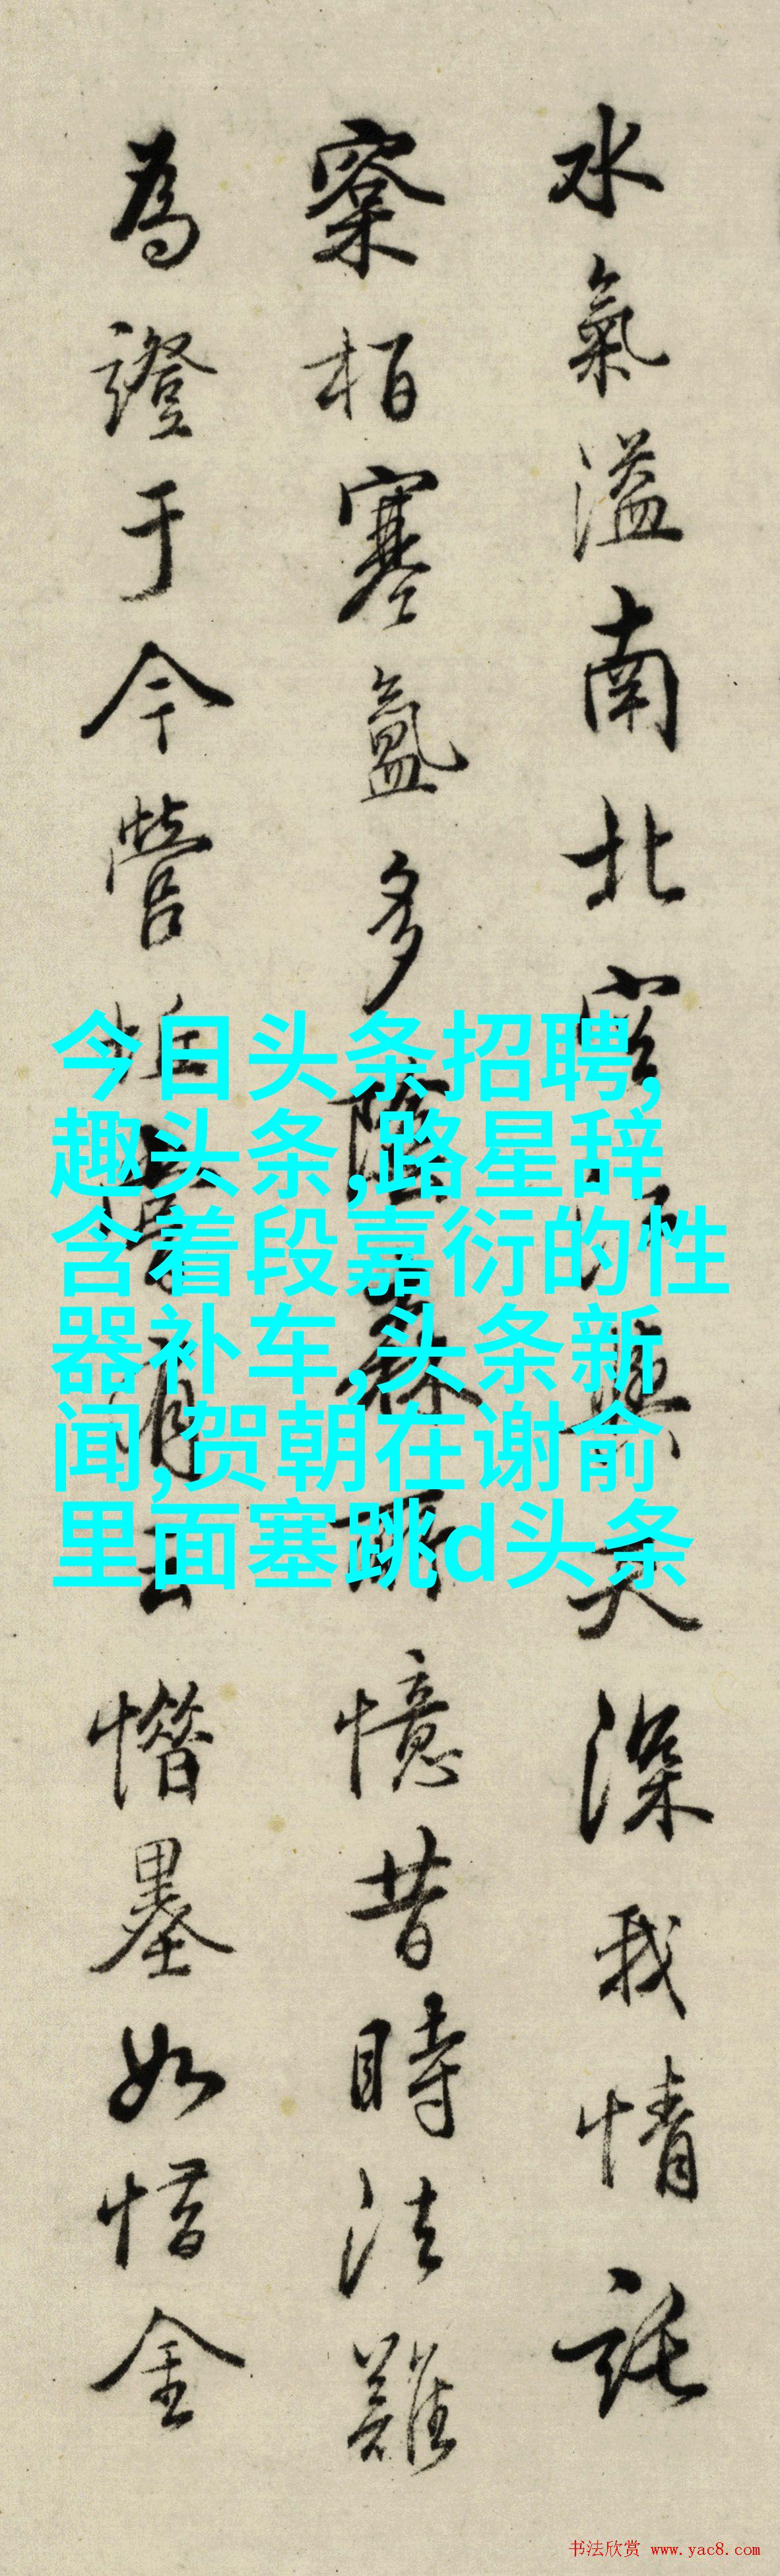 水氣溢南北
天深我情託
寀栢塞氳多陰
憶昔時法難
為證于今營
惜墨如惜金
今日头条招聘,
趣头条,路星辞
含着段嘉衍的性
器补车,头条新
闻,贺朝在谢俞
里面塞跳d头条
书法欣赏 www.yac8.com